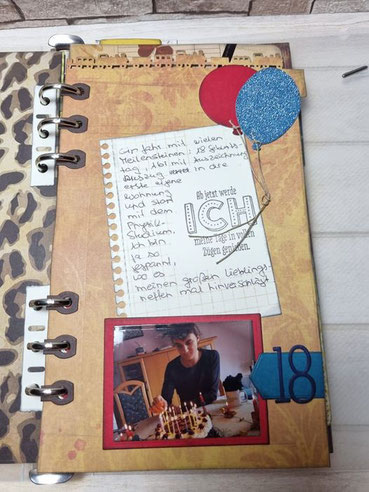 Ein Jahr mit vielen
Meilensteinen: 18. Geburts-
tag, Abi mit Auszeichnung
Auszug in die
erste eigene
Wohnung
und Start
mit dem
Physik-
Studium.
Ich bin
ja so
gespannt,
wo es
meinen großen Lieblings-
neffen mal hinverschlägt
Ab jetzt werde
ICH
meine Tage in vollen
Zügen genießen.
18